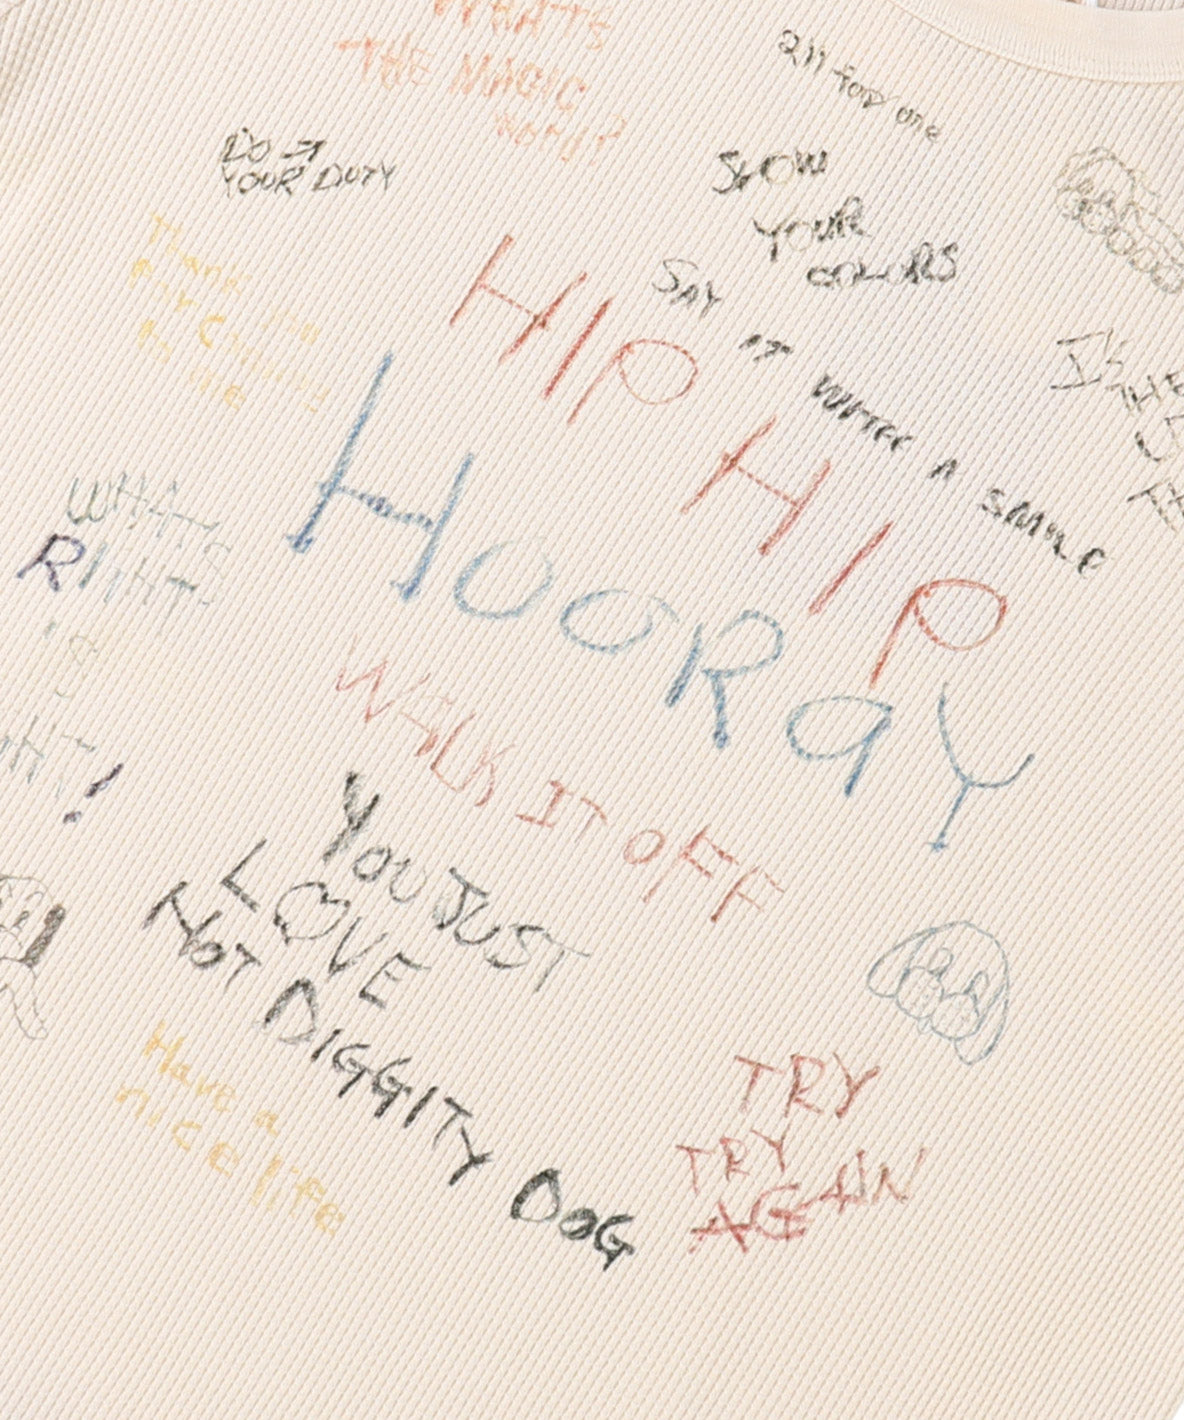 WHATS
THE MAGIC
word?
all for one
DO
YOUR DUTY
SHOW
YOUR
COLORS
Thank you
for Coming
to me
SAY IT WITH A SMILE
HIP HIP
HOORaY
WHATS
RIGHT
IS
WALK IT OFF
YOU JUST
LOVE
HOT DIGGITY DOG
Have a
nice life
TRY
TRY
AGAIN